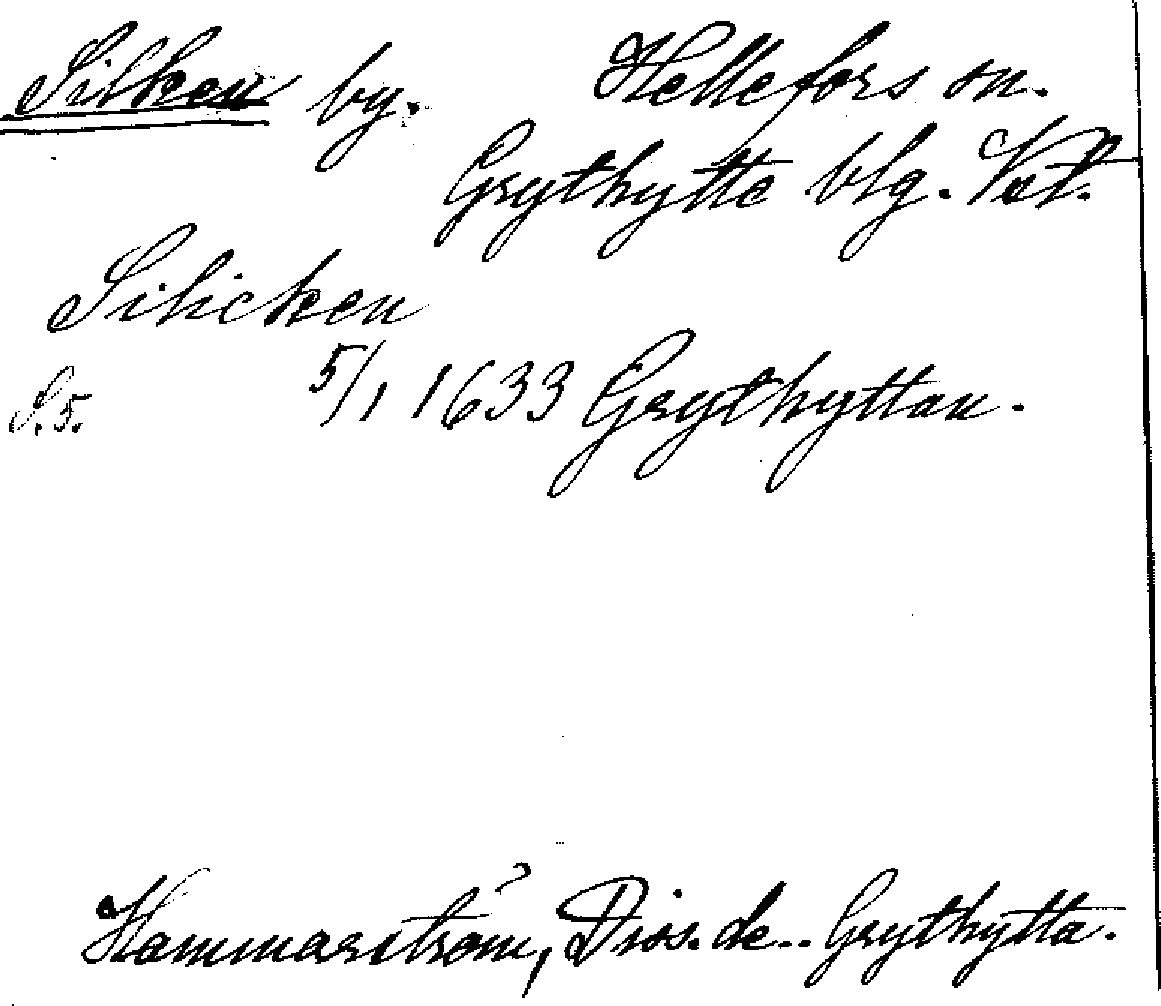 Silken by. Hellefors sn.
Grythytte blg. Vstl.
Silicken
S.5. 5/1 1633 Grythyttan.
Hammarström, Diss. de.. Grythytta.